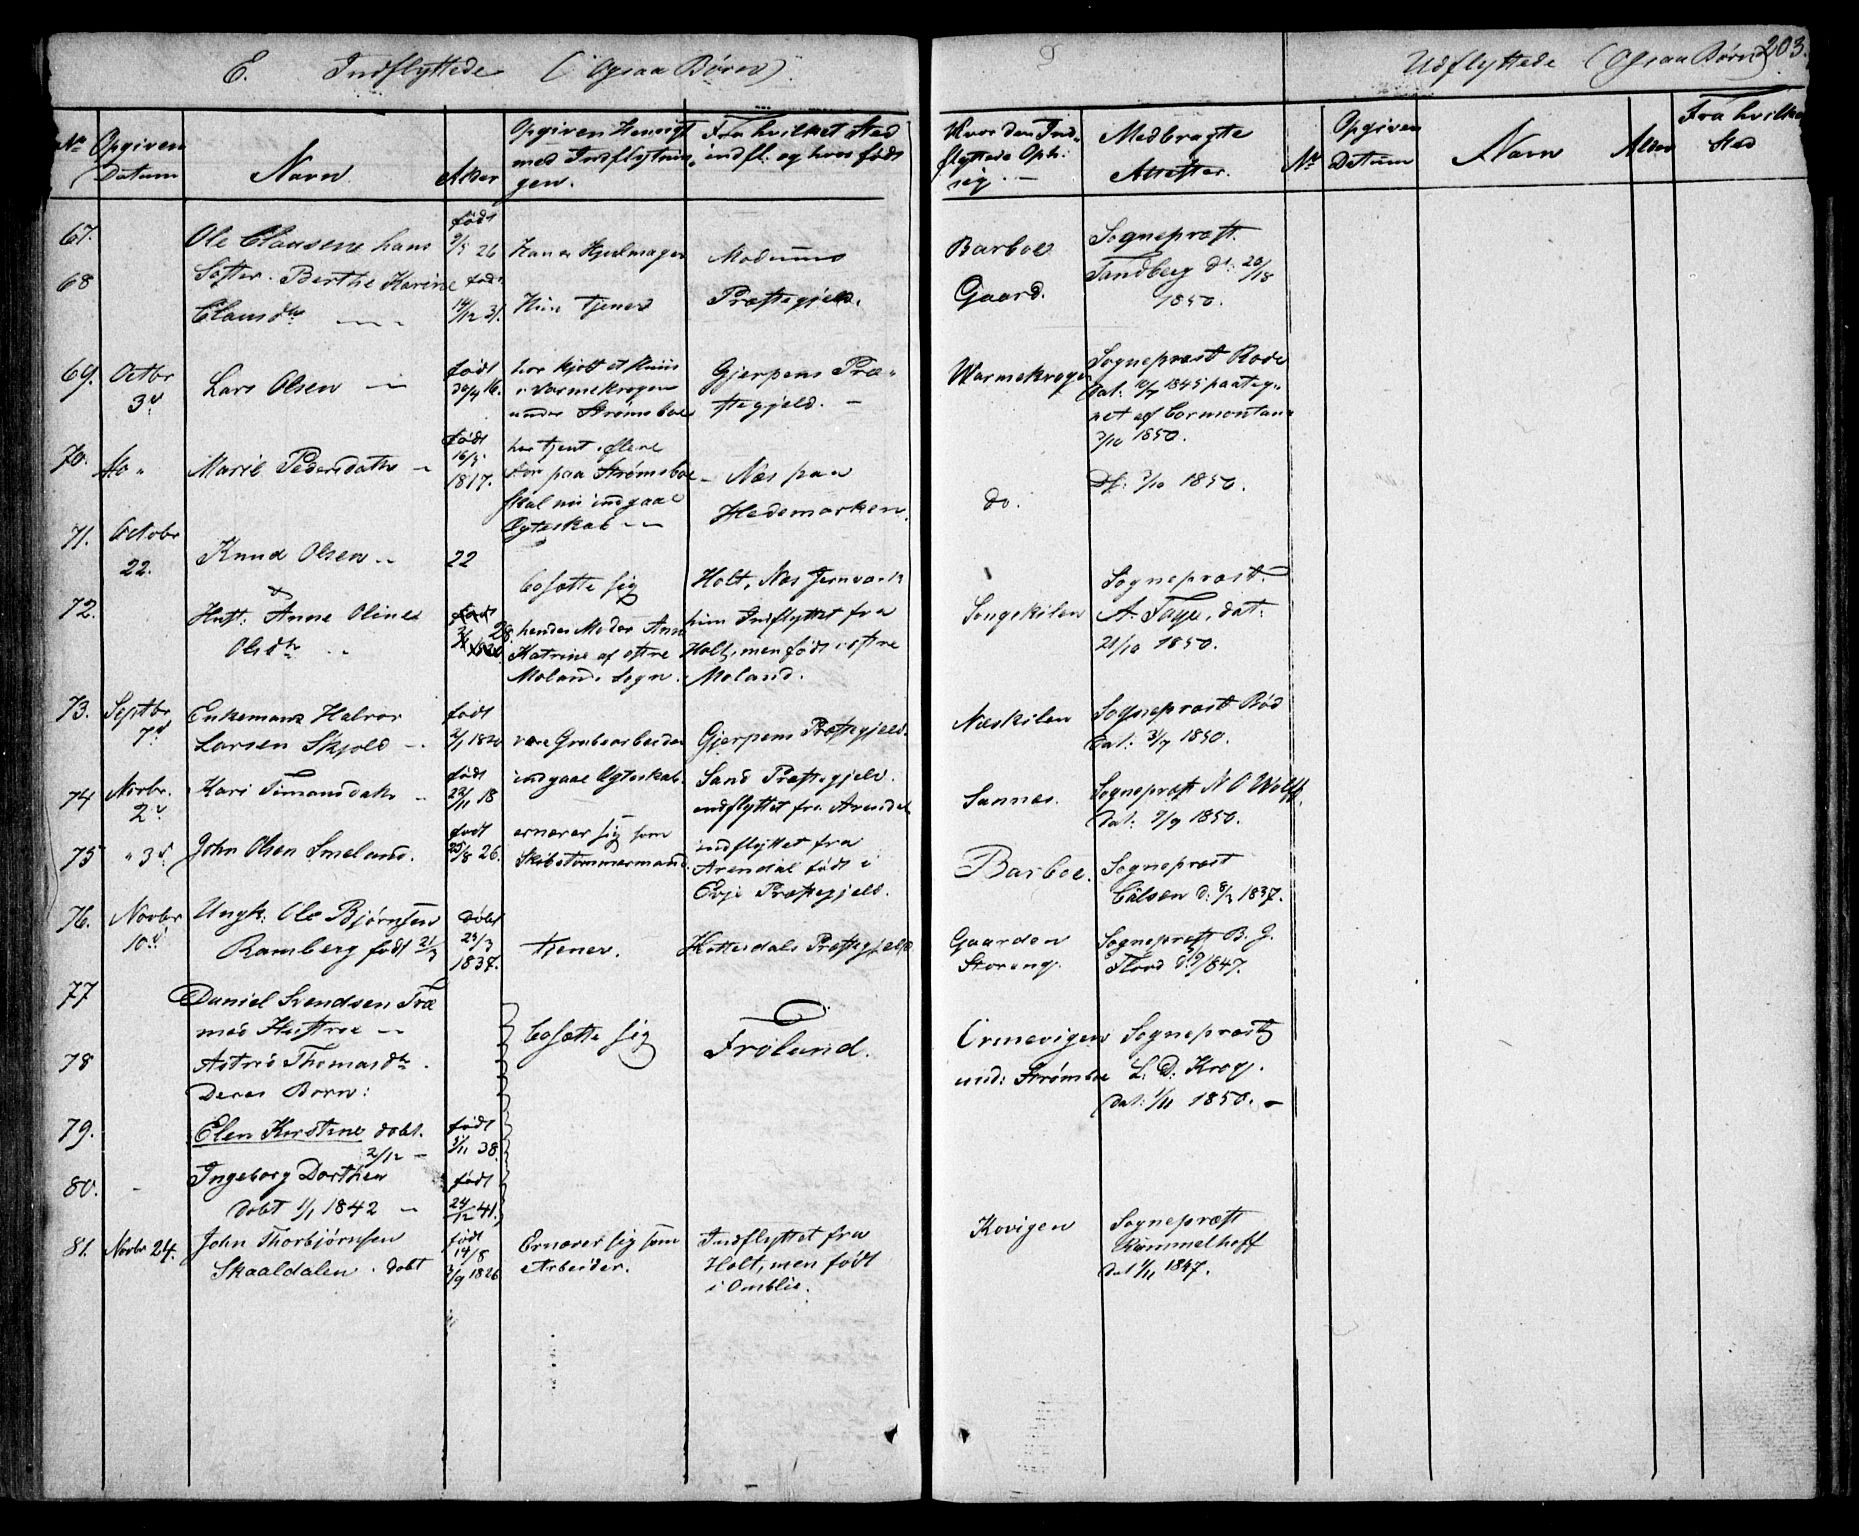 E. Indflyttede (Ogsaa Børn)
Udflyttede (Ogsaa Børn) 203.
No Opgiven Datum
Navn
Alder
Opgiven Hensigt
med Indflytnin-
gen.
Fra hvilket Sted
indfl: og hvor født
Hvor den Ind-
flyttede Oph:
sig. —
Medbragte
Attester.
No
Opgiven
Datum
Navn
Alder
Fra hvilket
Sted
67. Ole Clausen hans
født
9/5 26
Han er Hjulmager
Modums
Barboe
Sognepræst.
68 Søster. Berthe Karine
Clausdtr
født
14/12 31.
Hun tjener
Præstegjeld.
Gaard.
Tandberg dt: 20/18
1850.
69. Octbr
3d
Lars Olsen —
født
30/4 16.
har kjøtt et Huus
i Varmekrogen
under Strømsboe
Gjerpens Præ-
stegjeld. —
Warmekrogen
Sognepræst Rode
Dat: 12/7 1845 paateg-
net af Cormontan
2/10 1850.
70. do "
Marie Pedersdatr —
født
16/5.
1817.
har tjent i flere
Aar paa Strømsboe
skal nu indgaae
Egteskab —
Næs paa
Hedemarken.
do.
Df: 2/10 1850.
71. October
22.
Knud Olsen —
22
bosætte sig
Holt, Næs Jernværk
Songekilen
Sognepræst
72.
&
Hust: Anne Oline
Olsdtr
født
28.
hendes Moder Ann
Katrine af østre
Moland Sogn.
hun Indflyttet fra
Holt, men født i østre
Moland.
A. Faye, dat:
21/10 1850.
73. Septbr
7d
Enkemand Halvor
Larsen Skjold —
født
2/1 1820
være Grubearbeider
Gjerpens Præstegjeld.
Næskilen
Sognepræst Rød
Dat: 3/7 1850.
74 Novbr.
2d
Kari Simonsdatr
født
22/11 18
indgaae Egteskab
Sand Præstegjeld.
indflyttet fra Arendal
Sannes.
Sognepræst N O Wolff.
Dat: 7/9 1850.
75 " 3d.
John Olsen Smeland.
født
25/8 26.
ernærer sig som
Skibstømmermand.
indflyttet fra
Arendal født i
Evje Præstegjeld.
Barboe.
Sognepræst
d: 8/3 1837.
76. Novbr
10d
Ungk: Ole Bjørnsen
Ramberg født 21/3
døbt
25/3
1837.
tjener.
Hitterdals Præstegjeld
Gaarden
Storeng.
Sognepræst B. G.
Flood 1847.
77
Daniel Svendsen Træ
med Hustroe —
78
Astrid Thomasdtr.
Deres Børn:
bosætte sig
Froland.
Ormevigen
und: Strømsboe
Sognepræst
L: D: Krog.
Dat: 1/11 1850. —
79.
Elen Kirstine døbt.
2/12 —
født
5/11 38.
80. -
Ingeborg Dorthea
døbt 1/1 1842 —
født
24/12 41.
81. Novbr 24.
John Thorbjørnsen
Skaaldalen. døbt
født
14/8
3/9 1826
Ernærer sig som
Arbeider.
Indflyttet fra
Holt, men født
i Omblie.
Kovigen
Sognepræst
Kømmelhoff
dat 1/11 1847.